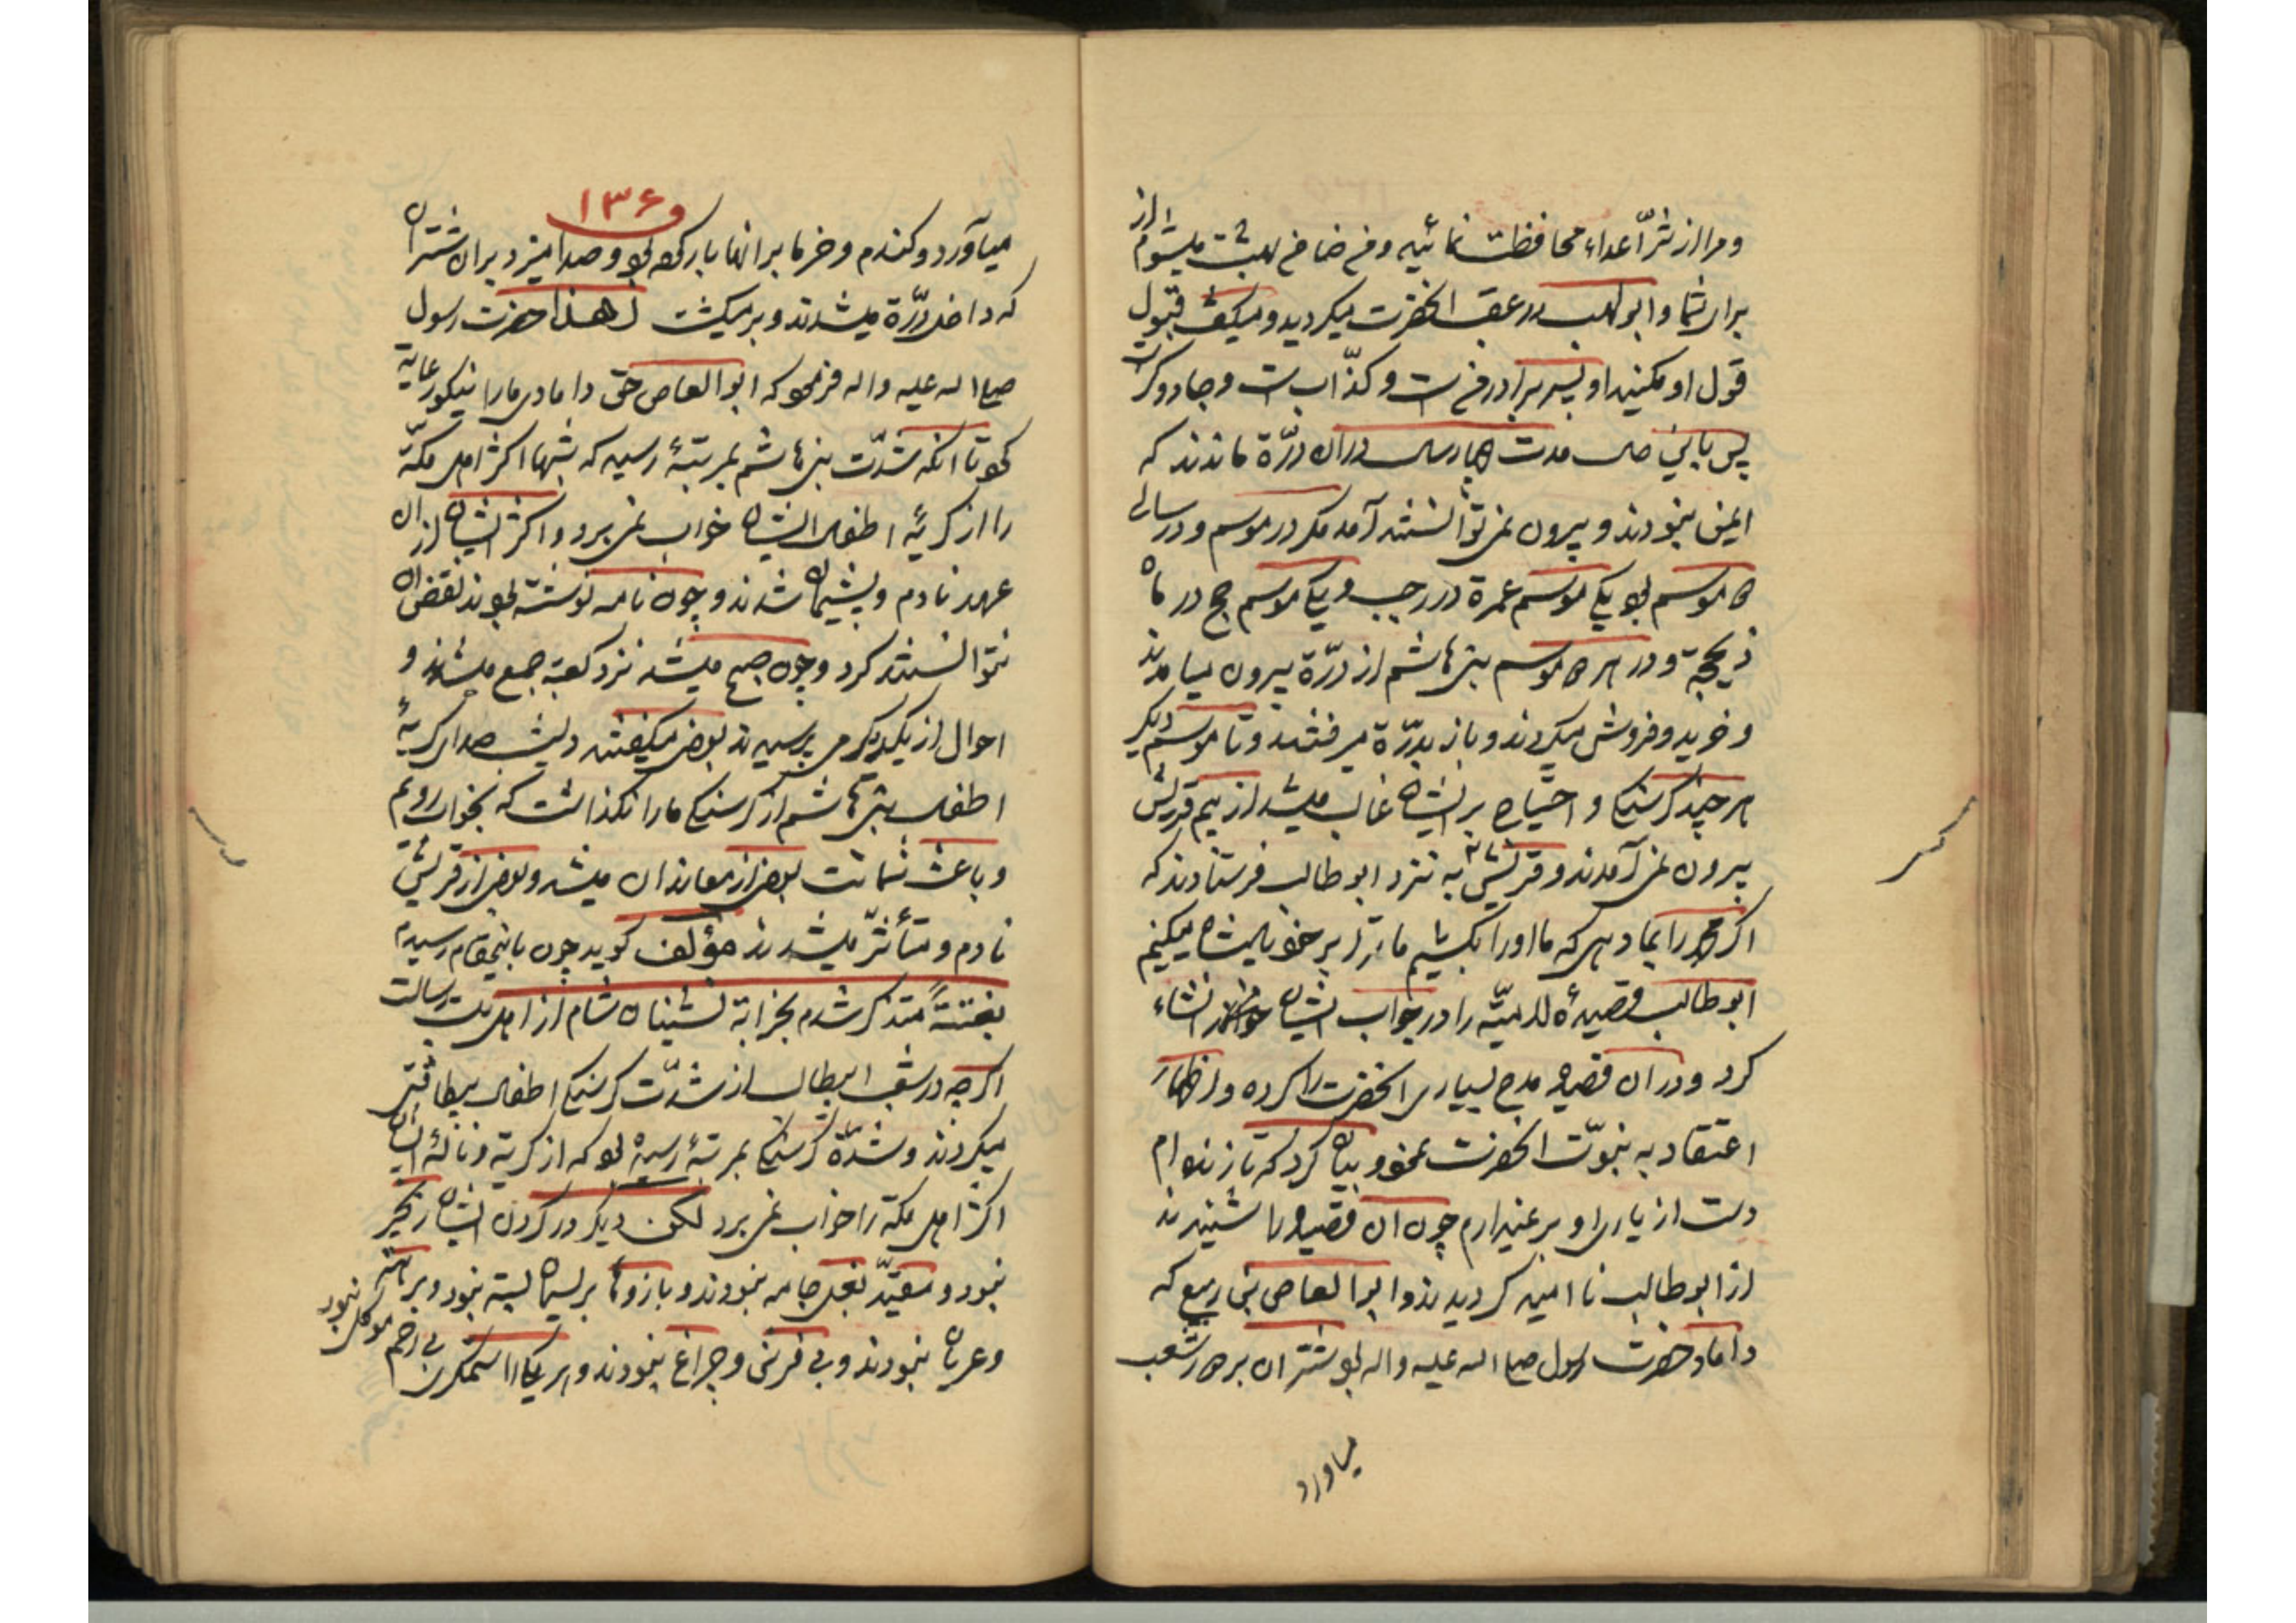 ومرا از شرّ اعداء محافظت نمائید ومن ضامن بهشت میشوم از
برای شما وابولهب در عقب انحضرت میکردید ومیکفت قبول
قول او مکنید او پسر برادر من است وکذّاب است وجادوکر است
پس باین حال مدت چهار سال دران درّه ماندند که
ایمن نبودند وبیرون نمی توانستند آمد مکر در موسم ودر سالی
دو موسم بود یکی موسم عمرة در رجب ویکی موسم حج در ماه
ذیحجة ودر هر دو موسم بنی هاشم از درّة بیرون میامدند
وخرید وفروش میکردند وباز بدرّة میرفتند وتا موسم دیکر
هر چند کرسنکی واحتیاج بر ایشان غالب میشد از بیم قریش
بیرون نمی آمدند وقریش به نزد ابوطالب فرستادند که
اکر محمد را بما دهی که ما اورا بکشیم ما ترا بر خود پادشاه میکنیم
ابوطالب قصیدهٔ لامیّه را در جواب ایشان انشاء
کرد ودران قصیده مدح بسیاری انحضرت را کرده واظهار
اعتقاد به نبوّت انحضرت نمود وبیان کرد که تا زنده ام
دست از یاری او بر نمیدارم چون ان قصیده را شنیدند
از ابوطالب نا امید کردیدند وابوالعاص بن ربیع که
داماد حضرت رسول صلی الله علیه واله بود شتران بر در شعب
میاورد
۱۳۶
میآورد وکندم وخرما برانها بار کرده بود وصدا میزد بران شتران
که داخل درّة میشدند وبرمیکشت لهذا حضرت رسول
صلی الله علیه واله فرمود که ابوالعاص حق دامادی مارا نیکو رعایة
کرد تا انکه شدّت بنی هاشم بمرتبهٔ رسید که شبها اکثر اهل مکّة
را از کریهٔ اطفال ایشان خواب نمی برد واکثر ایشان ازان
عهد نادم وپشیمان شدند وچون نامه نوشته بودند نقض ان
نتوانستند کرد وچون صبح میشد نزد کعبة جمع میشدند و
احوال از یکدیکر می پرسیدند بعضی میکفتند دیشب صدای کریهٔ
اطفال بنی هاشم از کرسنکی مارا نکذاشت که بخواب رویم
وباعث شماتت بعضی از معاندان میشد وبعضی از قریش
نادم ومتأثّر میشدند مؤلف کوید چون باینمقام رسیدم
بغتتةً متذکر شدم بخرابة نشینان شام از اهل بیت رسالت
اکرچه در شعب ابیطالب از شدّت کرسنکی اطفال بیطاقتی
میکردند وشدّة کرسنکی بمرتبهٔ رسیده بود که از کریة ونالهٔ ایشان
اکثر اهل مکّة را خواب نمی برد لکن دیکر در کردن ایشان زنجیر
نبود ومقیّد بغل جامه نبودند وبازوها بریسمان بسته نبود وبرهنه
وعریان نبودند وبی فرش وچراغ نبودند وبر یکی را ستمکری بی رحم موکل نبود